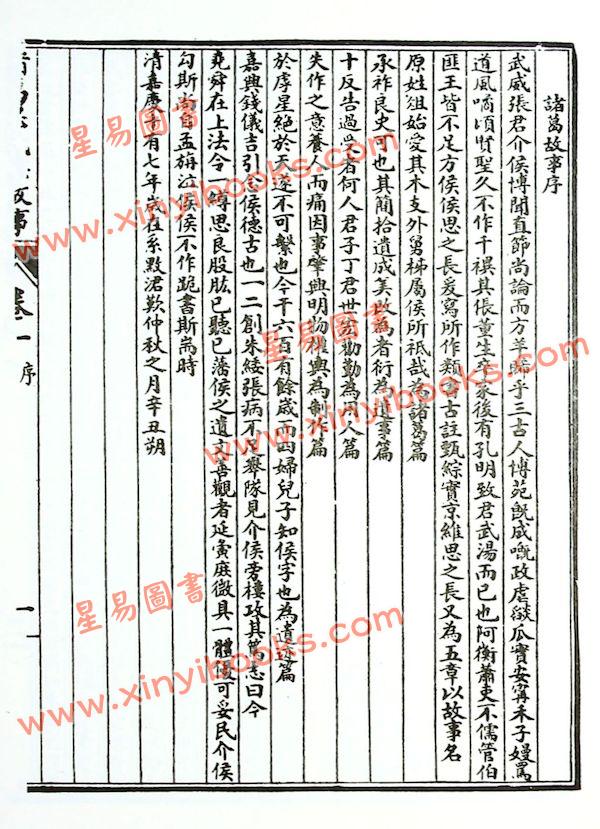 諸葛故事序
武威張君介侯博聞直節尚論而方羊睎乎三古人博苑旣成嘅政虐燄瓜實安甯禾子嫚罵
道風喁頃賢聖久不作千禩其倀董生辛家後有孔明致君武湯而已也阿衡蕭吏不儒管伯
匪王皆不足方侯侯思之長爰寫所作類書古註甄綜實京維思之長又為五章以故事名
原姓俎始受其木支外舅𥿊屬侯所祇哉為諸葛篇
承祚良史可也其簡拾遺成美敢為者衍為遺事篇
十反告過此者何人君子丁君世並勸勤為用人篇
失作之意養人而痛因事肇興明物權輿為制作篇
於虖星絕於天遂不可繫也今千六百有餘歲而因婦兒子知侯字也為遺蹟篇
嘉興錢儀吉引曰侯德古也一二創朱綾張病不舉隊見介侯旁棲攻其篤志曰今
堯舜在上法令一縛思良股肱已聽已藩侯之遺文善觀者延黃庭微具一體優可妥民介侯
勾斯尚自孟旃泣侯侯不作跪書斯耑時
清嘉慶廿有七年歲在系黓涒歎仲秋之月辛丑朔
故事
卷一
序
一
星易圖書
www.xinyibooks.com
星易圖書
www.xinyibooks.com
星易圖書
www.xinyibooks.com
星易圖書
www.xinyibooks.com